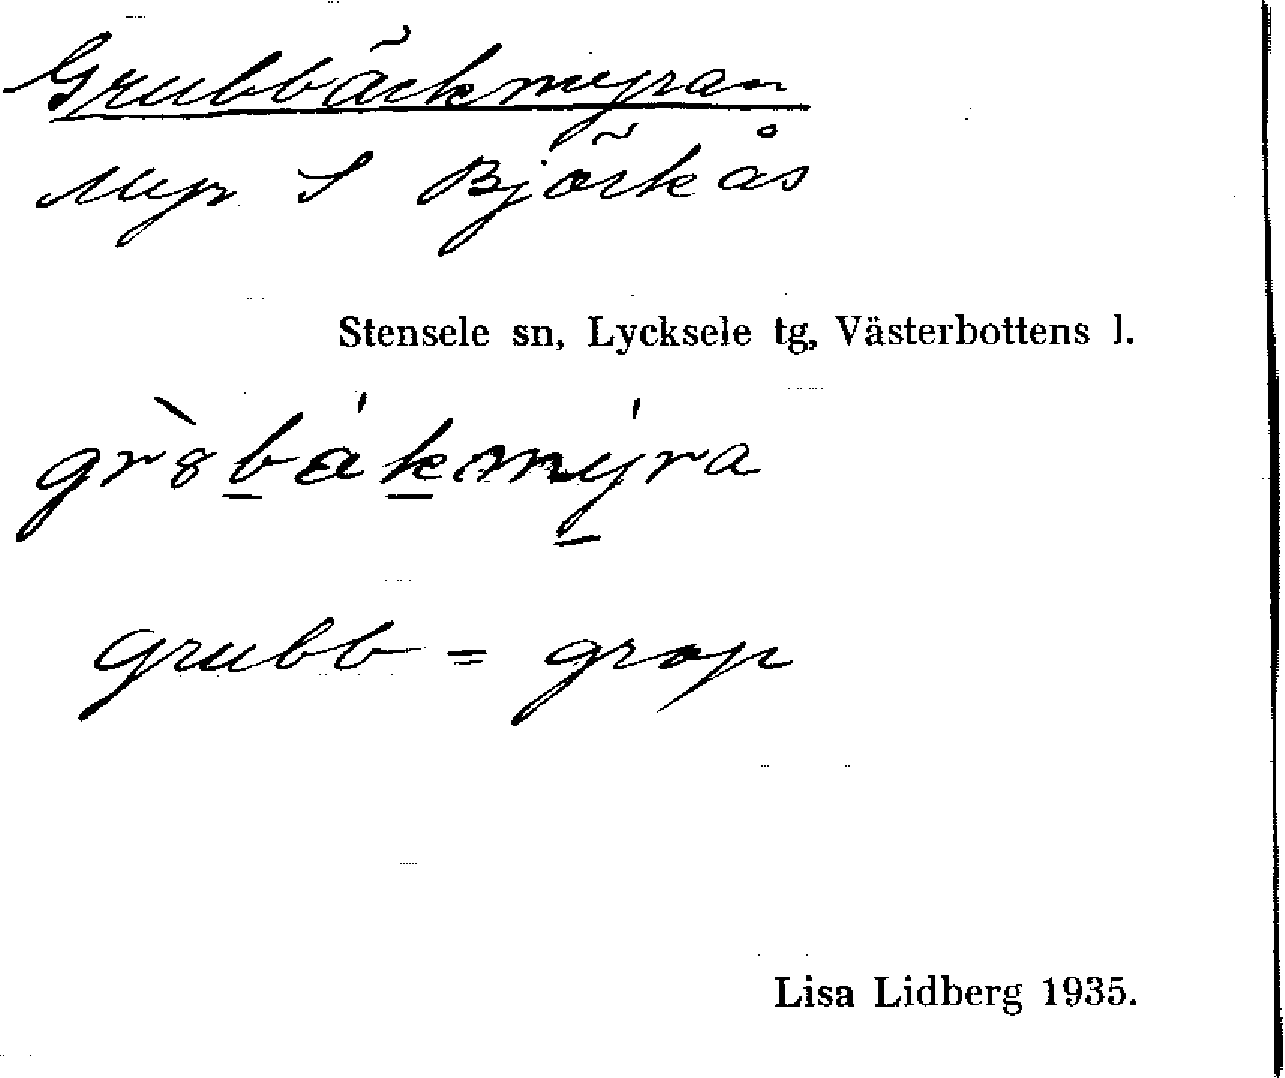 Grubbäckmyran
Myr S Björkås
Stensele sn, Lycksele tg, Västerbottens l.
gr̀8b̲ák̲mý̲ra
grubb = grop
Lisa Lidberg 1935.